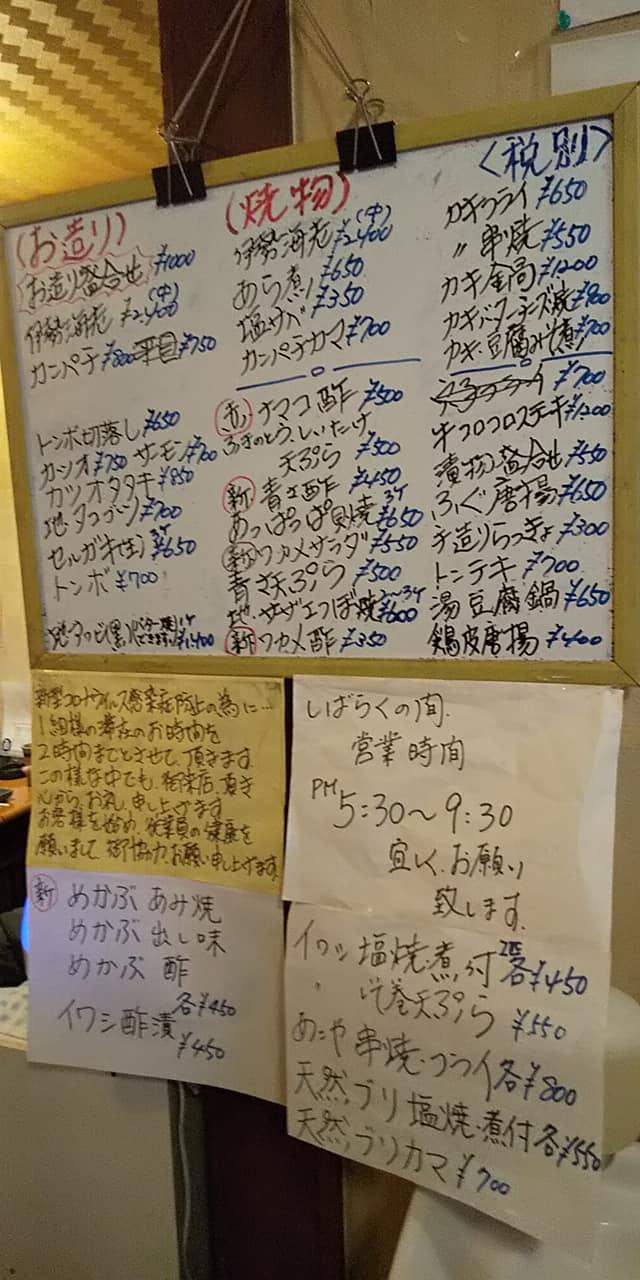 (お造り)
お造り盛合せ ¥1000
伊勢海老 (中) ¥2,400
カンパチ ¥800 平目 ¥750
トンボ切落し ¥650
カツオ ¥750 サーモン ¥700
カツオタタキ ¥850
地タコブツ ¥700
セルガキ(生) 3ケ ¥650
トンボ ¥700
¥1,400
(焼物)
伊勢海老 (中) ¥2,400
あら煮 ¥650
塩サバ ¥350
カンパチカマ ¥700
赤ナマコ酢 ¥500
ふきのとう、しいたけ
天ぷら ¥500
新 青さ酢 ¥450
あっぱっぱ貝焼 3ケ ¥650
新 ワカメサラダ ¥550
青さ天ぷら ¥500
地、サザエつぼ焼 2〜3ケ ¥600
新 ワカメ酢 ¥350
<税別>
カキフライ ¥650
〃 串焼 ¥550
カキ金局 ¥1200
カキバターチーズ焼 ¥800
カキ豆腐みそ煮 ¥700
¥700
牛コロコロステーキ ¥1,200
漬物盛合せ ¥550
ふぐ唐揚 ¥650
手造りらっきょ ¥300
トンテキ ¥700
湯豆腐鍋 ¥650
鶏皮唐揚 ¥400
新型コロナウイルス感染症防止の為に…
1組様の滞在のお時間を
2時間までとさせて、頂きます
この様な中でも、御来店、頂き
心から、お礼、申し上げます
お客様を始め、従業員の健康を
願いまして、御協力、お願い申し上げます
新 めかぶ あみ焼
めかぶ 出し味
めかぶ 酢
各¥450
イワシ酢漬
¥450
しばらくの間、
営業時間
PM
5:30〜9:30
宜しく、お願い
致します
イワシ 塩焼・煮付 2匹 各¥450
〃 いそ巻天ぷら ¥550
あこや 串焼・フライ各¥800
天然、ブリ 塩焼・煮付 各¥550
天然、ブリカマ ¥700